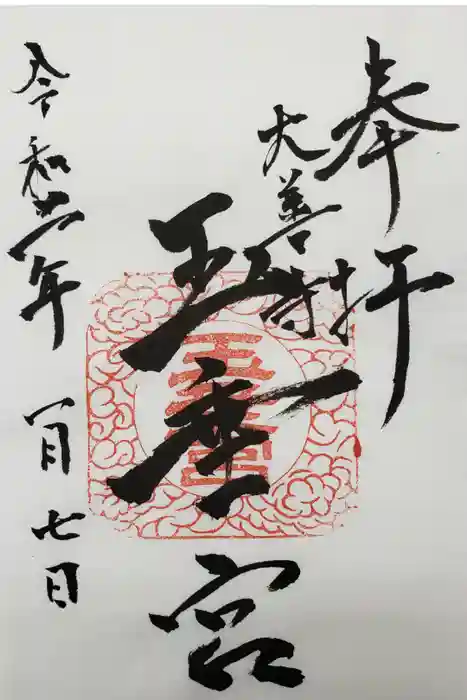 奉拝
大善寺
玉垂宮
玉垂宮
令和六年 一月七日